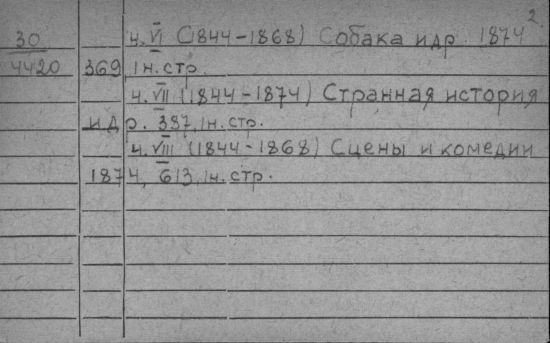 2.
30 ч. VI (1844-1868) Собака и др. 1874
4420 369, 1 н. стр.
ч. VII (1844-1874) Странная история
и др. 387, 1 н. стр.
ч. VIII (1844-1868) Сцены и комедии
1874, 613, 1 н. стр.